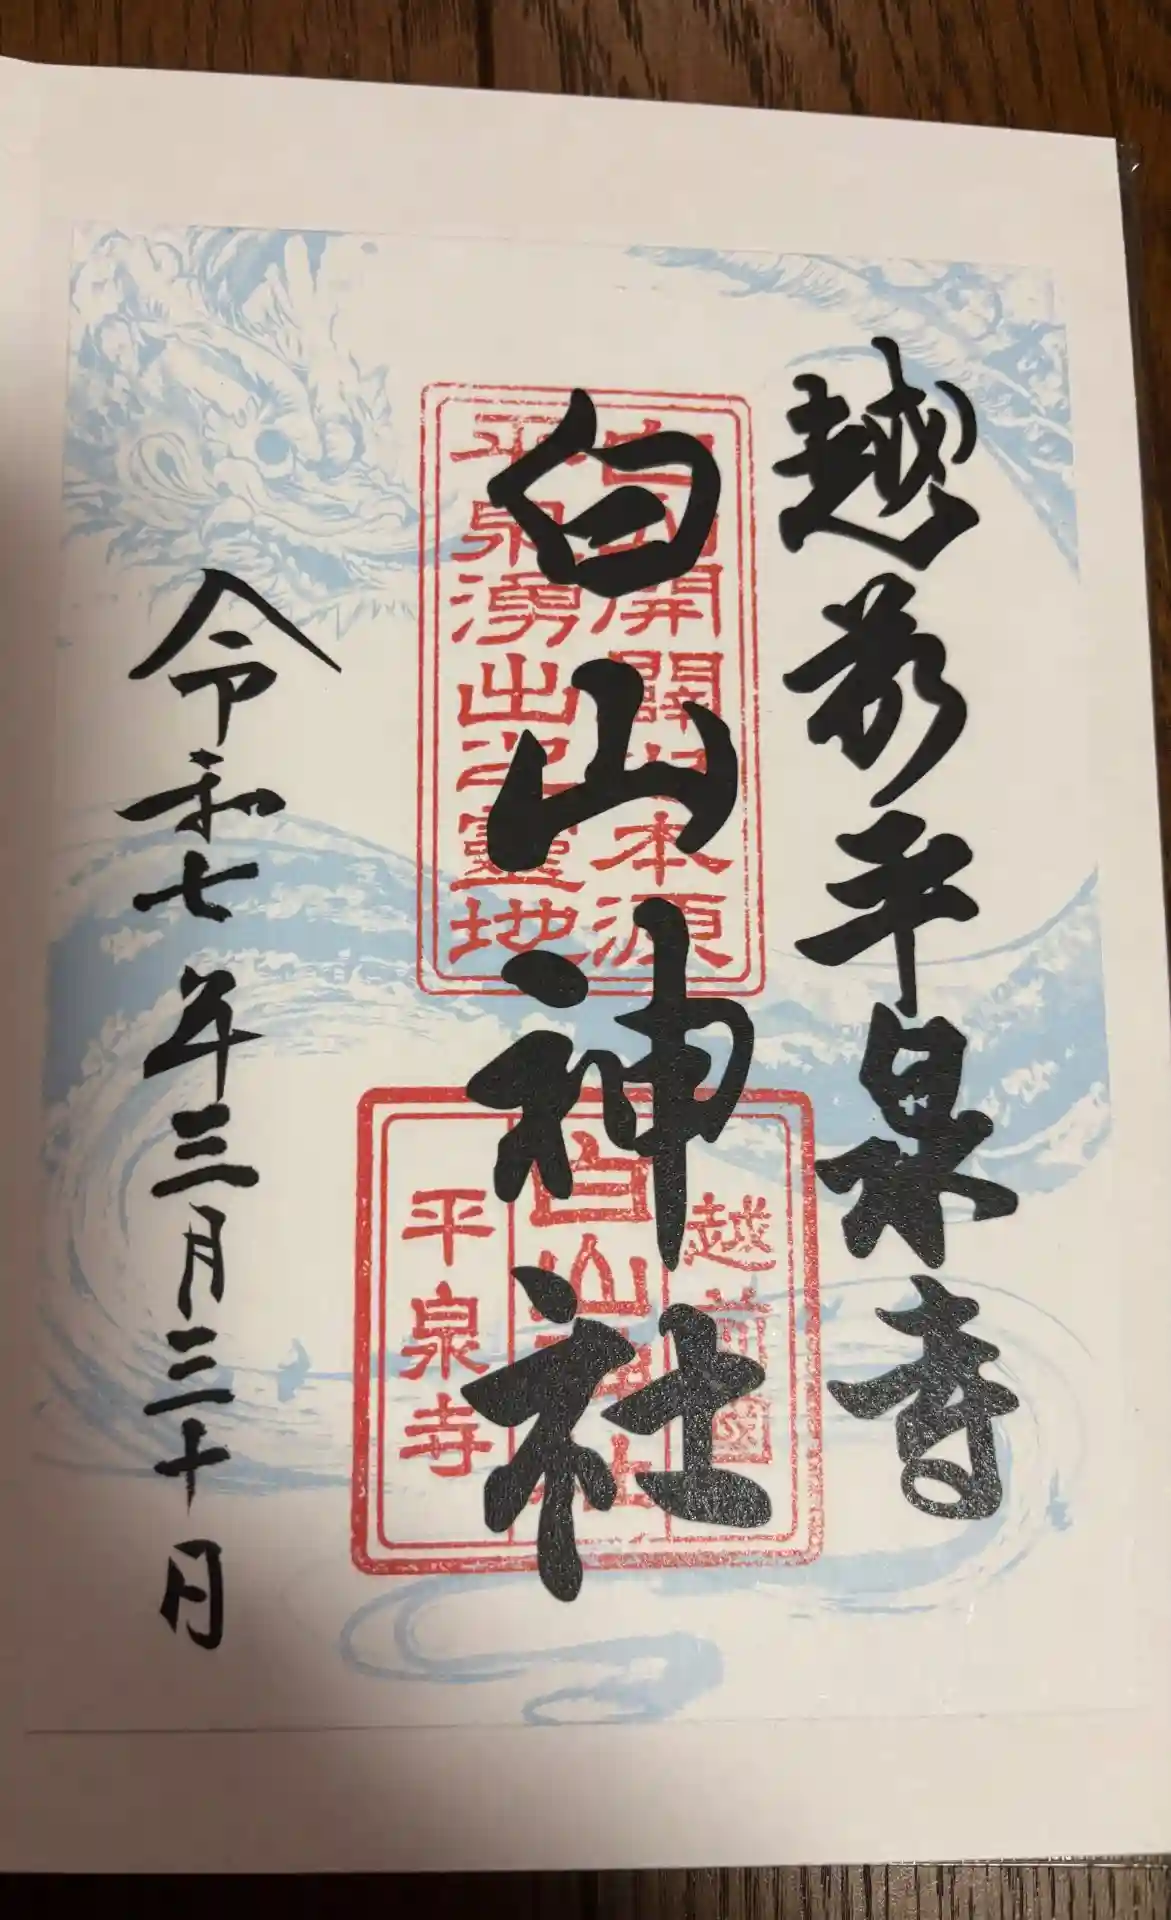 越前平泉寺
白山神社
令和七年三月三十日
白山開闢之本源
平泉湧出之靈地
越前國
白山神社
平泉寺